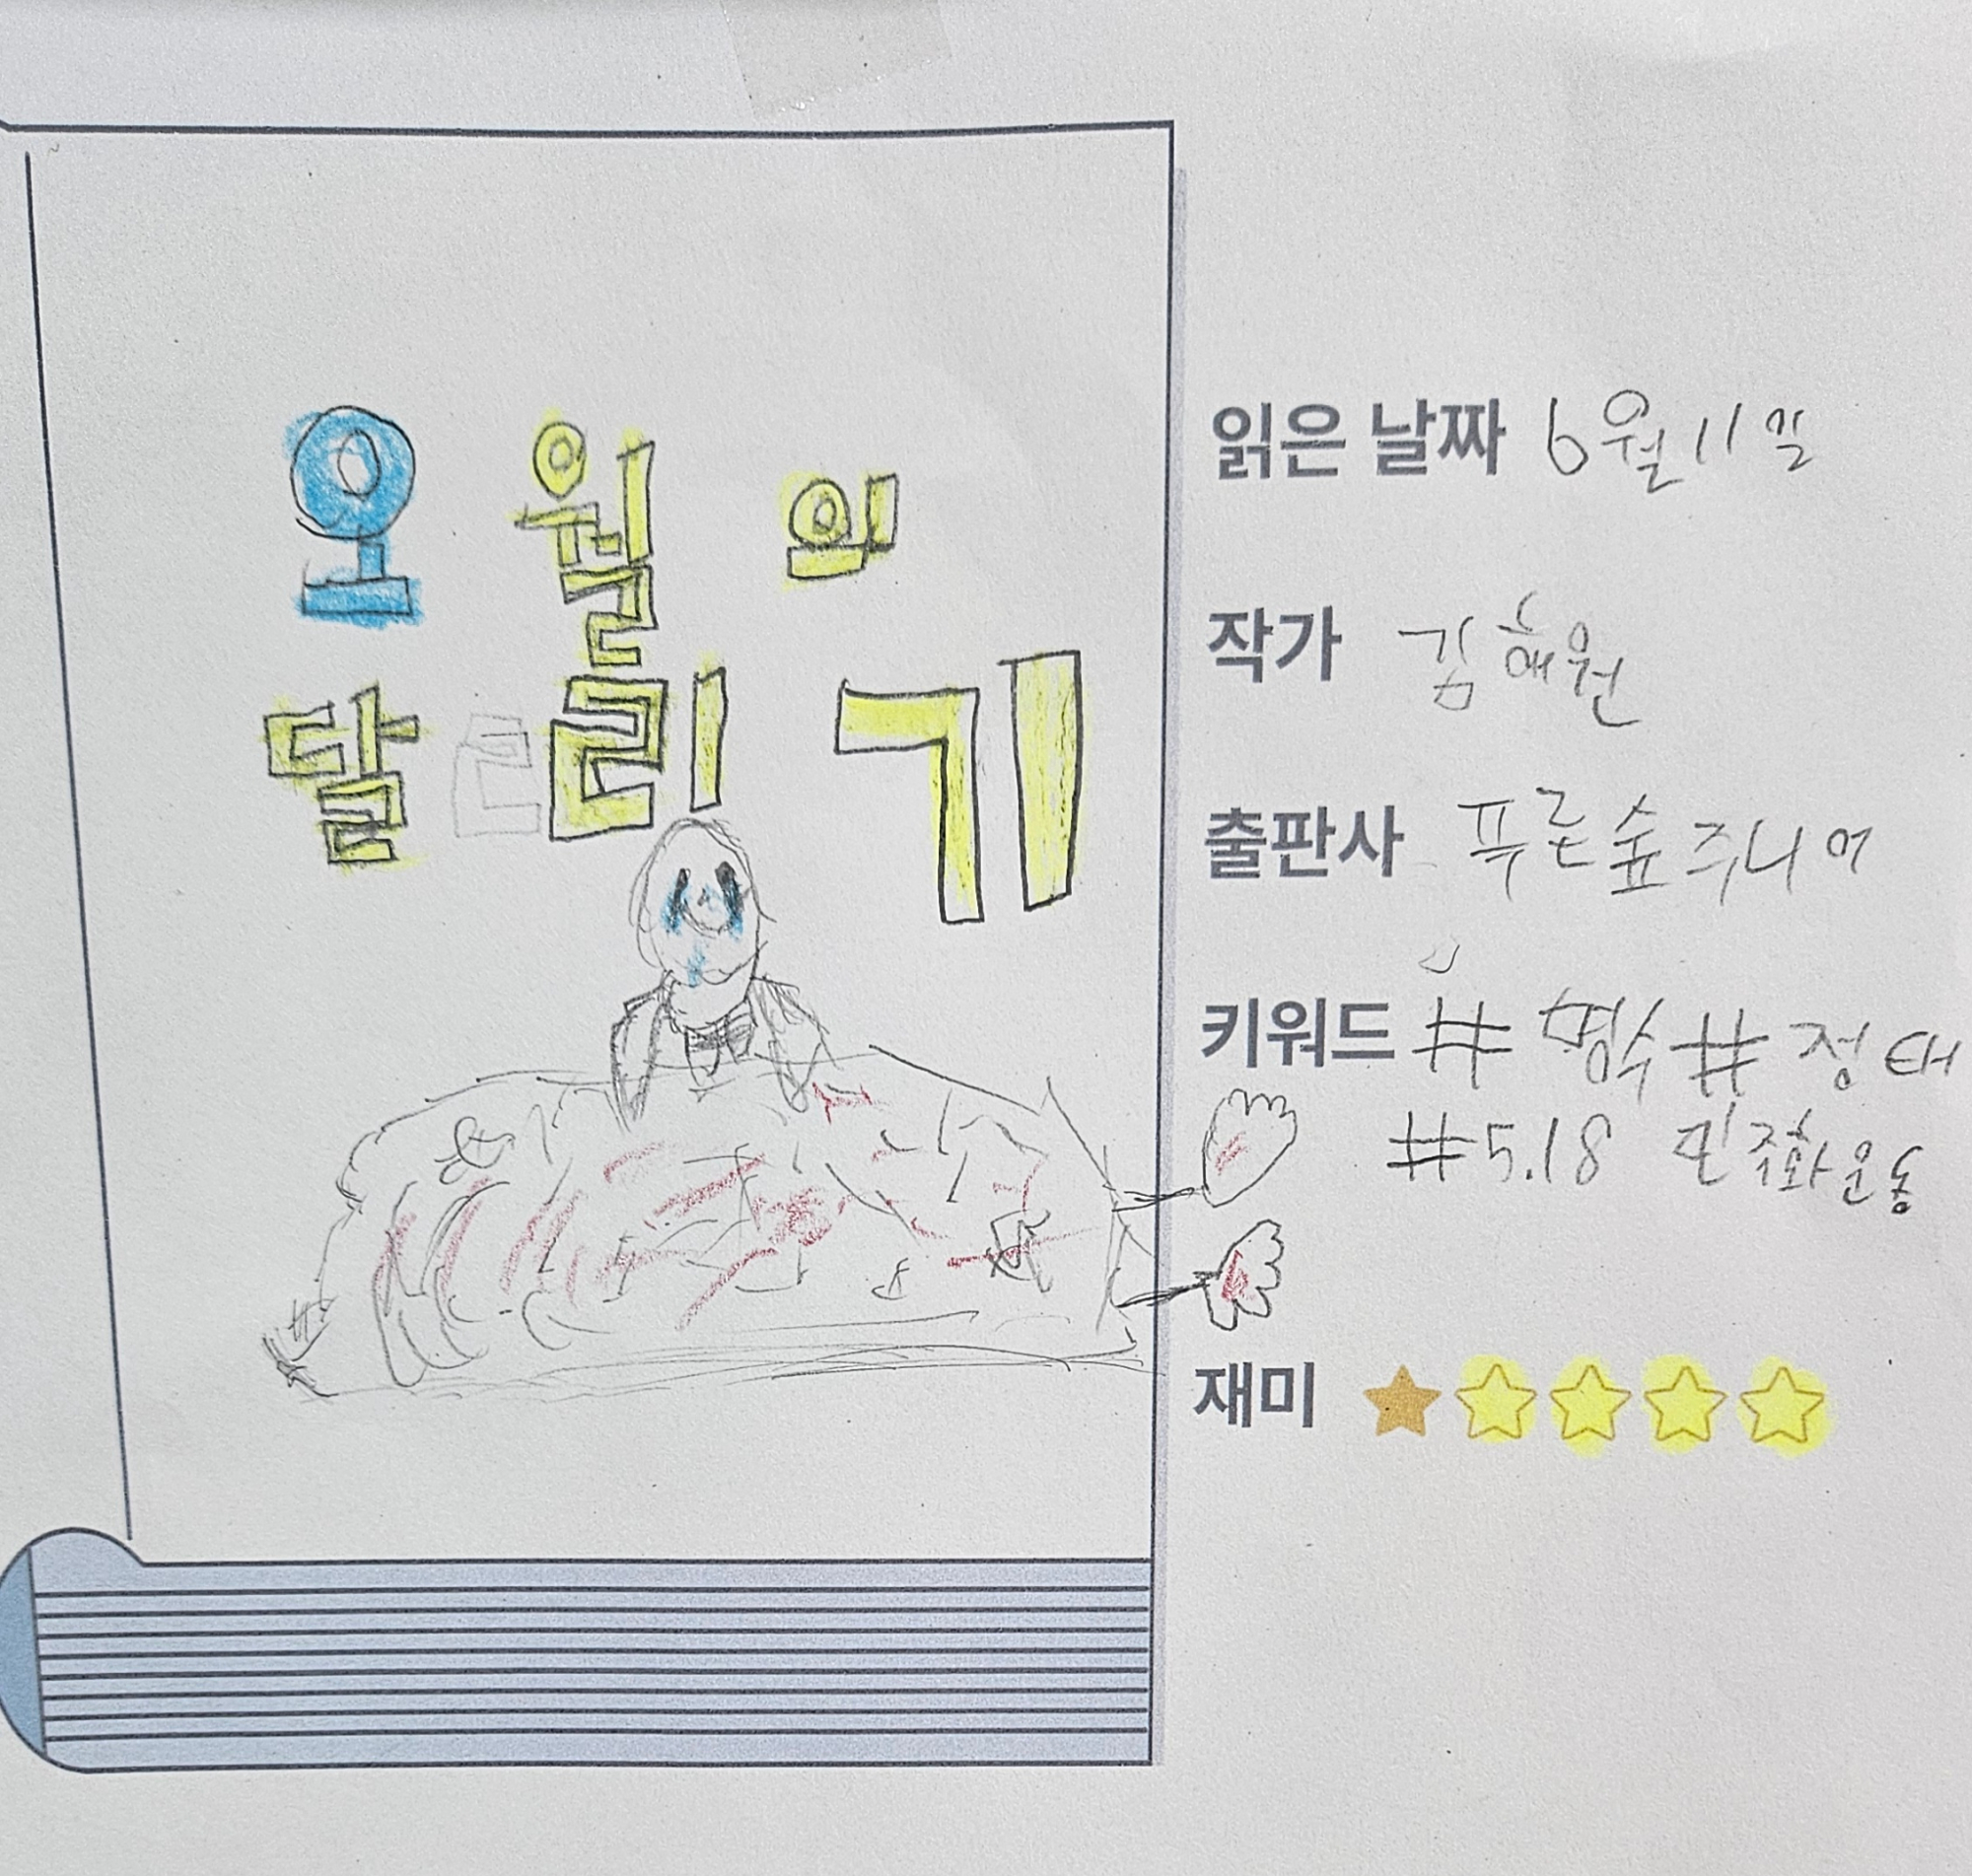 오월의
달리기
읽은 날짜 6월 11일
작가 김해원
출판사 푸른숲주니어
키워드 #명수 #정태
#5.18 민주화운동
재미